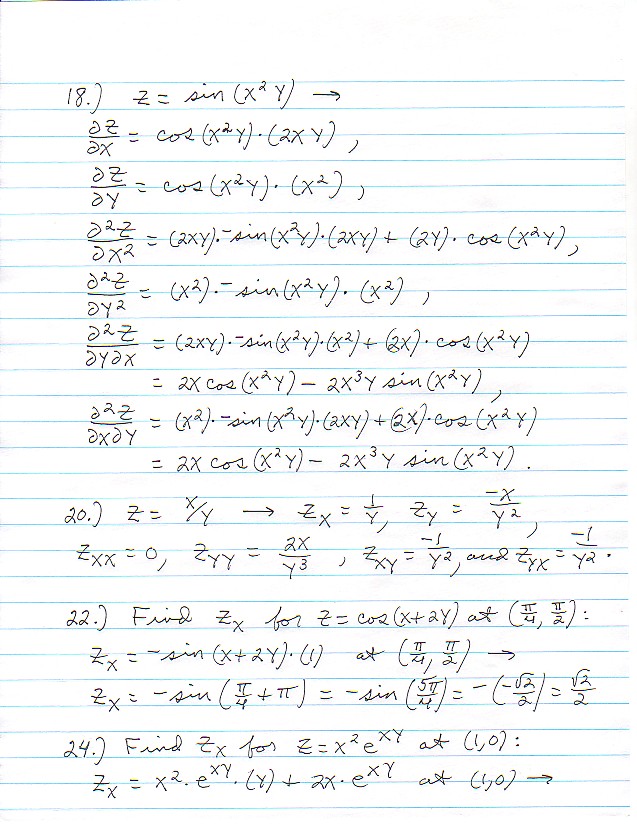 18.) Z = sin (x² y) →
∂Z/∂x = cos (x² y)·(2xy) ,
∂Z/∂y = cos (x² y)·(x²) ,
∂²Z/∂x² = (2xy)·-sin(x² y)·(2xy) + (2y)·cos (x² y),
∂²Z/∂y² = (x²)·-sin(x² y)·(x²) ,
∂²Z/∂y∂x = (2xy)·-sin(x² y)·(x²) + (2x)·cos(x² y)
= 2x cos (x² y) - 2x³ y sin (x² y) ,
∂²Z/∂x∂y = (x²)·-sin(x² y)·(2xy) + (2x)·cos (x² y)
= 2x cos (x² y) - 2x³ y sin (x² y) .
20.) Z = x/y → Zx = 1/y, Zy = -x/y² ,
Zxx = 0, Zyy = 2x/y³ , Zxy = -1/y², and Zyx = -1/y² .
22.) Find Zx for Z = cos (x+2y) at (π/4, π/2) :
Zx = -sin (x+2y)·(1) at (π/4, π/2) →
Zx = -sin (π/4 + π) = -sin (5π/4) = -(-√2/2) = √2/2
24.) Find Zx for Z = x² e^xy at (1,0) :
Zx = x²·e^xy·(y) + 2x·e^xy at (1,0) →